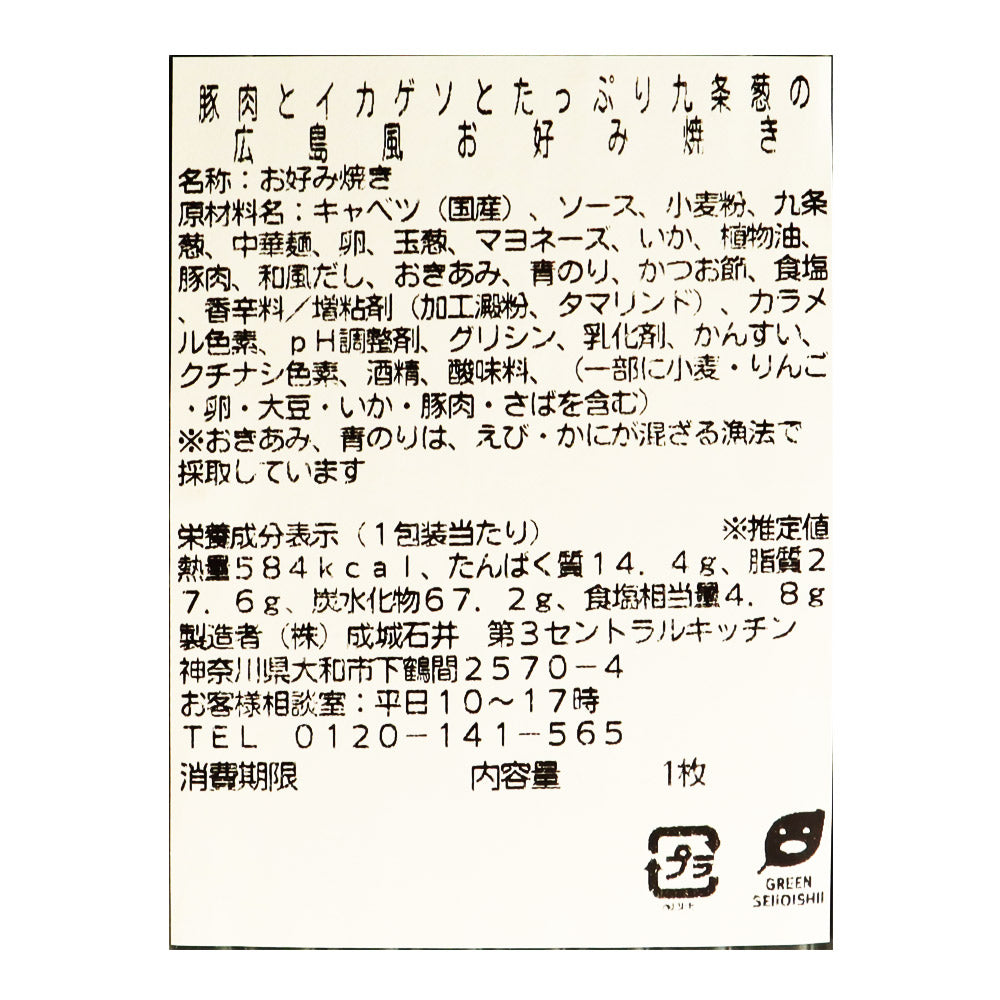 豚肉とイカゲソとたっぷり九条葱の
広島風お好み焼き
名称：お好み焼き
原材料名：キャベツ（国産）、ソース、小麦粉、九条
葱、中華麺、卵、玉葱、マヨネーズ、いか、植物油、
豚肉、和風だし、おきあみ、青のり、かつお節、食塩
、香辛料／増粘剤（加工澱粉、タマリンド）、カラメ
ル色素、ｐＨ調整剤、グリシン、乳化剤、かんすい、
クチナシ色素、酒精、酸味料、（一部に小麦・りんご
・卵・大豆・いか・豚肉・さばを含む）
※おきあみ、青のりは、えび・かにが混ざる漁法で
採取しています
栄養成分表示（１包装当たり） ※推定値
熱量５８４ｋｃａｌ、たんぱく質１４．４ｇ、脂質２
７．６ｇ、炭水化物６７．２ｇ、食塩相当量４．８ｇ
製造者（株）成城石井　第３セントラルキッチン
神奈川県大和市下鶴間２５７０－４
お客様相談室：平日１０～１７時
ＴＥＬ　０１２０－１４１－５６５
消費期限 内容量 １枚
プラ
GREEN